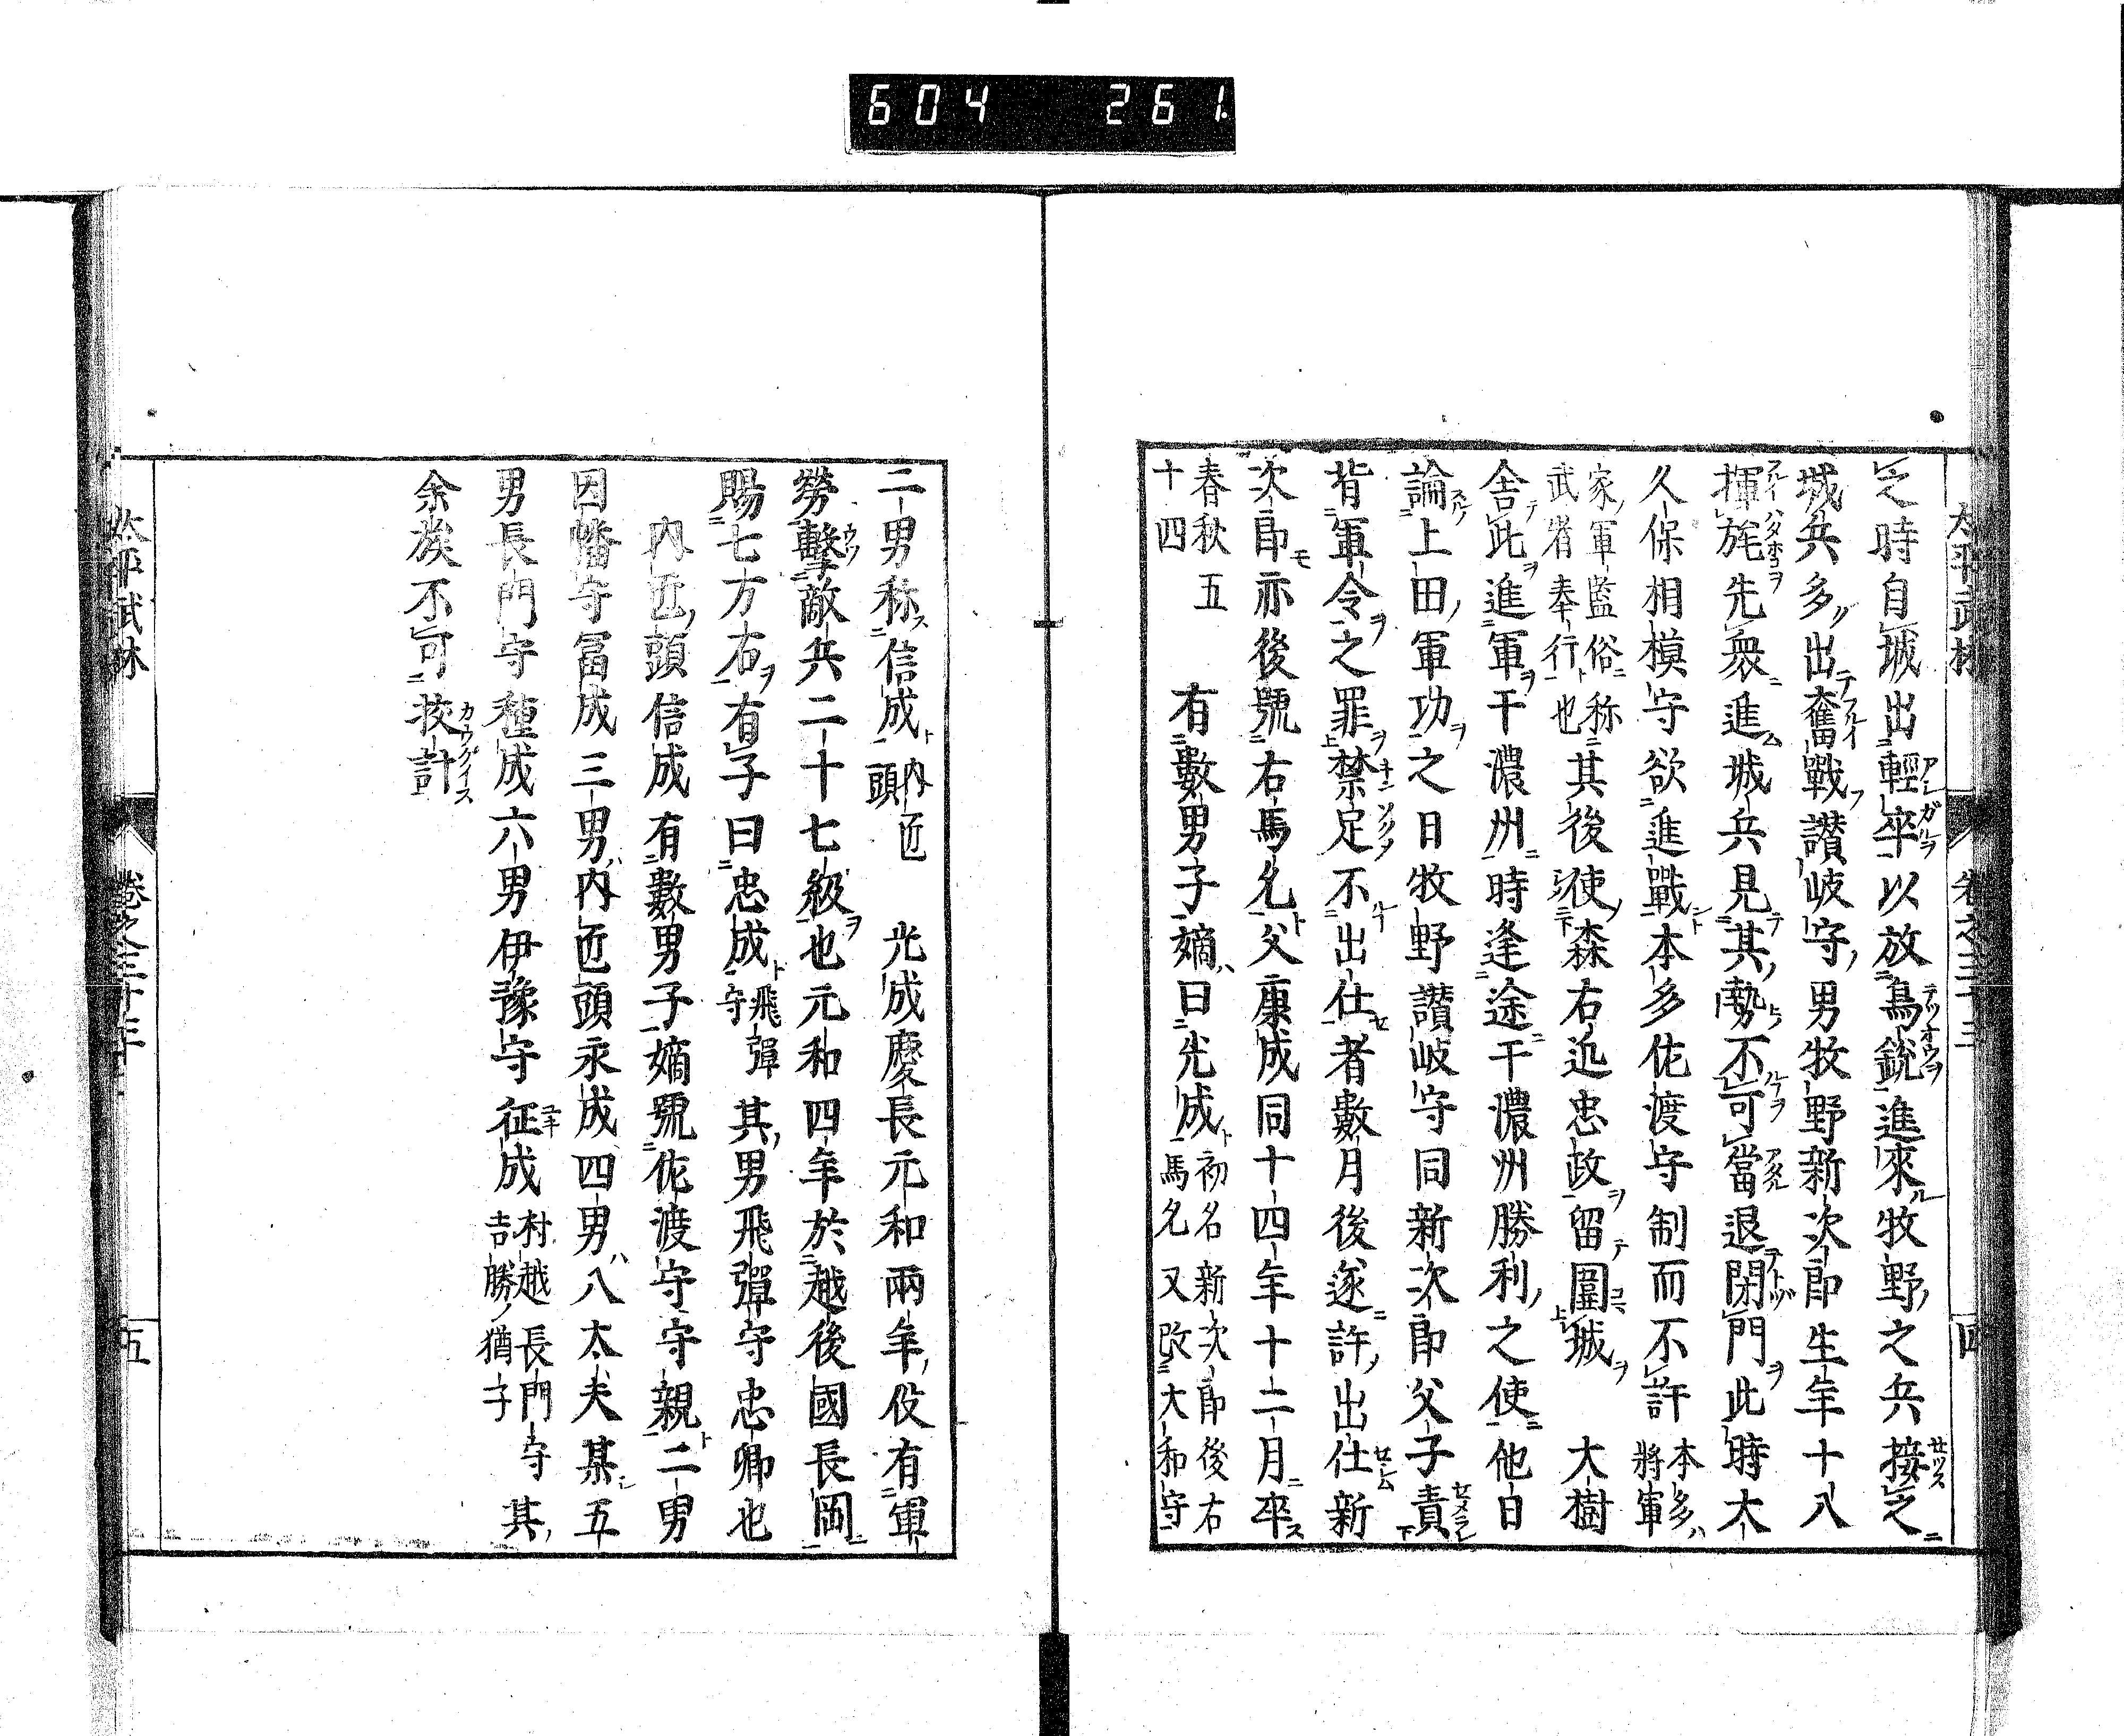 604 261
太平武林 卷之三十三 四
之時自城出輕卒以放鳥銃進來牧野之兵接之
城兵多出奮戰讃岐守男牧野新次郎生年十八
揮旄先衆進城兵見其勢不可當退閉門此時大
久保相模守欲進戰本多佐渡守制而不許本多ハ將軍
家軍監俗称武者奉行也其後使森右近忠政留圍城大樹
舍此進軍于濃州時逢途于濃州勝利之使他日
論上田軍功之日牧野讃岐守同新次郎父子責
背軍令之罪禁足不出仕者數月後遂許出仕新
次郎亦後號右馬允父康成同十四年十二月卒
春秋五十四有數男子嫡曰光成初名新次郎後右馬允又改大和守
二男称信成内匠頭光成慶長元和兩年役有軍
勞擊敵兵二十七級也元和四年於越後國長岡
賜七万石有子曰忠成飛彈守其男飛彈守忠卿也
内匠頭信成有數男子嫡號佐渡守守親二男
因幡守冨成三男内匠頭永成四男八太夫某五
男長門守種成六男伊豫守征成村越長門守吉勝ノ猶子其
余族不可挍計
太平武林 卷之三十三 五